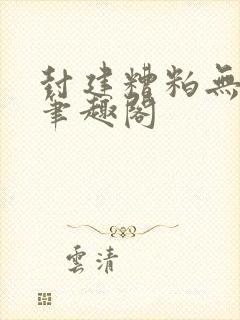 封建糟粕無
筆趣閣
雲清